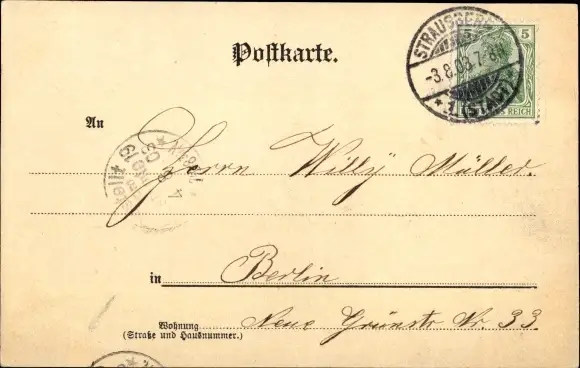 Postkarte.
STRAUSBERG
-3.8.03.7-8N.
* 1 (STADT)
5
REICH
An
Herrn Willy Müller.
in Berlin
Wohnung
(Straße und Hausnummer.)
Neue Grünstr Nr. 33.